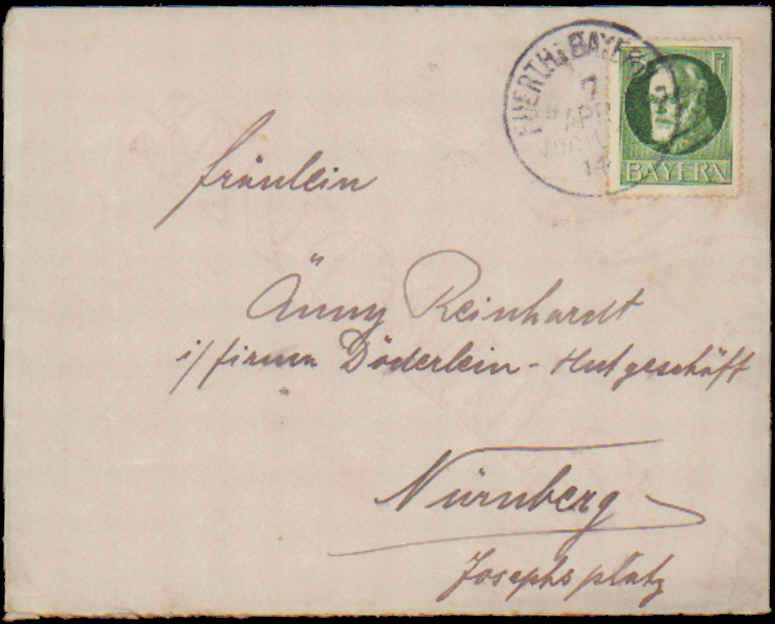 FUERTH i. BAYERN
7
APR
14
BAYERN
Fräulein
Änny Reinhardt
i/ Firma Döderlein - Hutgeschäft
Nürnberg
Josephsplatz